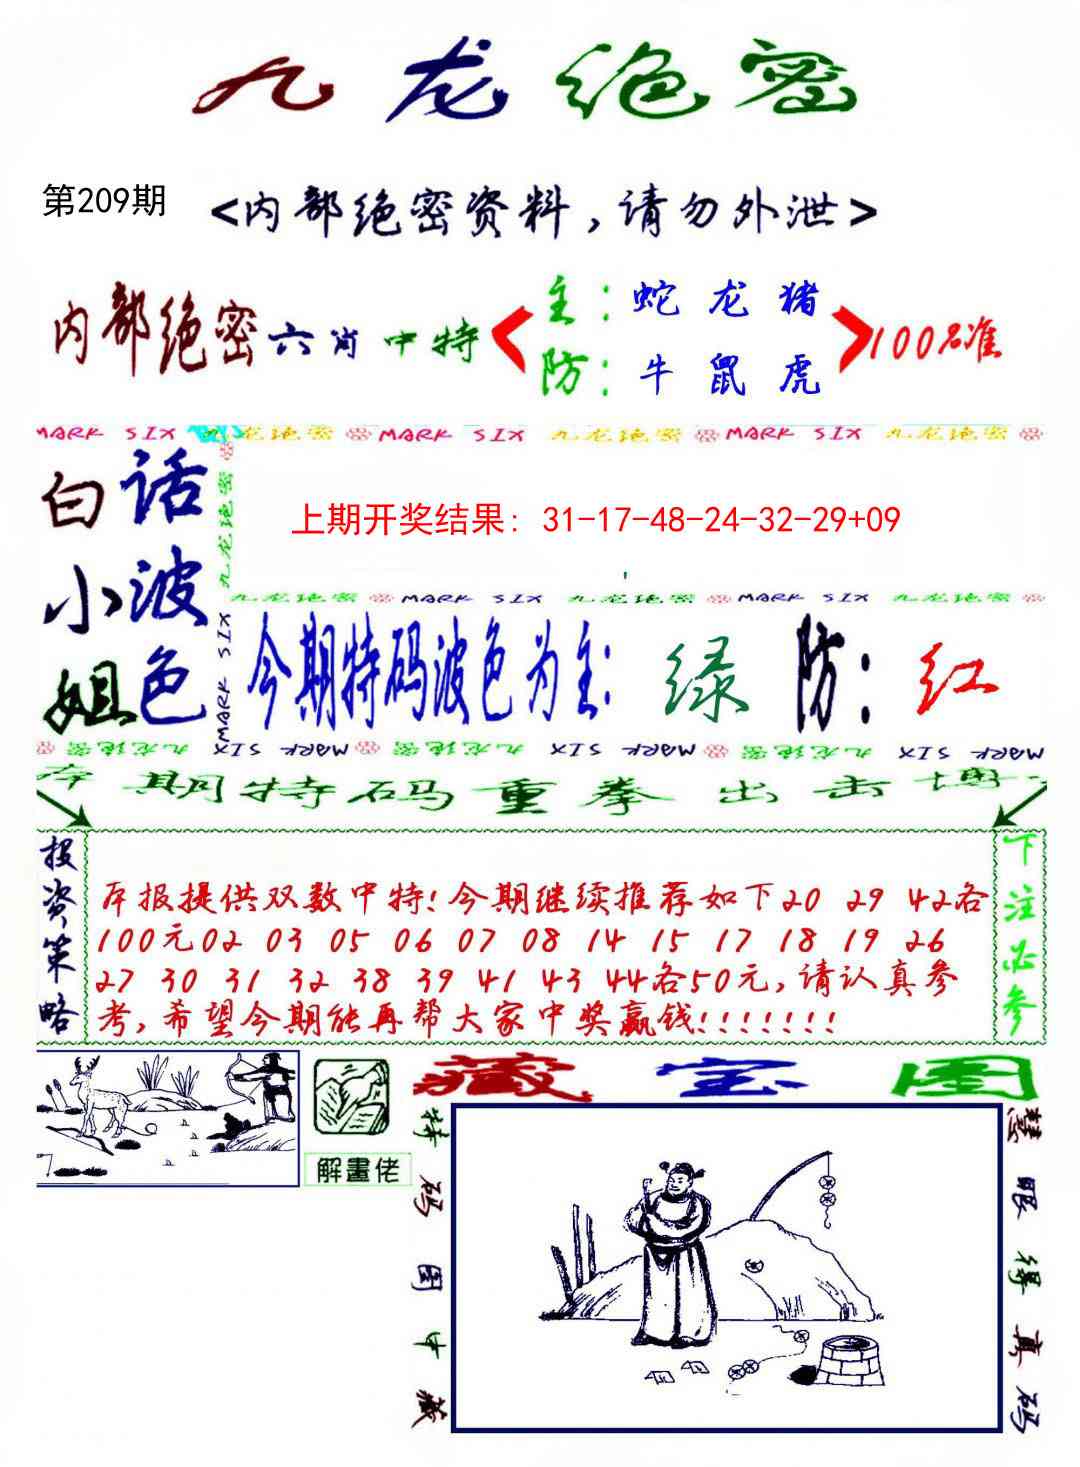 九龙绝密
第209期
<内部绝密资料,请勿外泄>
内部绝密六肖中特
主:蛇 龙 猪
防:牛 鼠 虎
100%准
MARK SIX 九龙绝密 MARK SIX 九龙绝密 MARK SIX 九龙绝密
白话
小波
姐色
九龙绝密
MARK SIX
上期开奖结果: 31-17-48-24-32-29+09
九龙绝密 MARK SIX 九龙绝密 MARK SIX 九龙绝密
今期特码波色为主: 绿 防: 红
九龙绝密 MARK SIX 九龙绝密 MARK SIX 九龙绝密 MARK SIX
本期特码重拳出击博
投资策略
本报提供双数中特!今期继续推荐如下20 29 42各
100元02 03 05 06 07 08 14 15 17 18 19 26
27 30 31 32 38 39 41 43 44各50元,请认真参
考,希望今期能再帮大家中奖赢钱!!!!!!!
下注必参
解畫佬
藏宝图
特码图中藏
慧眼得真码